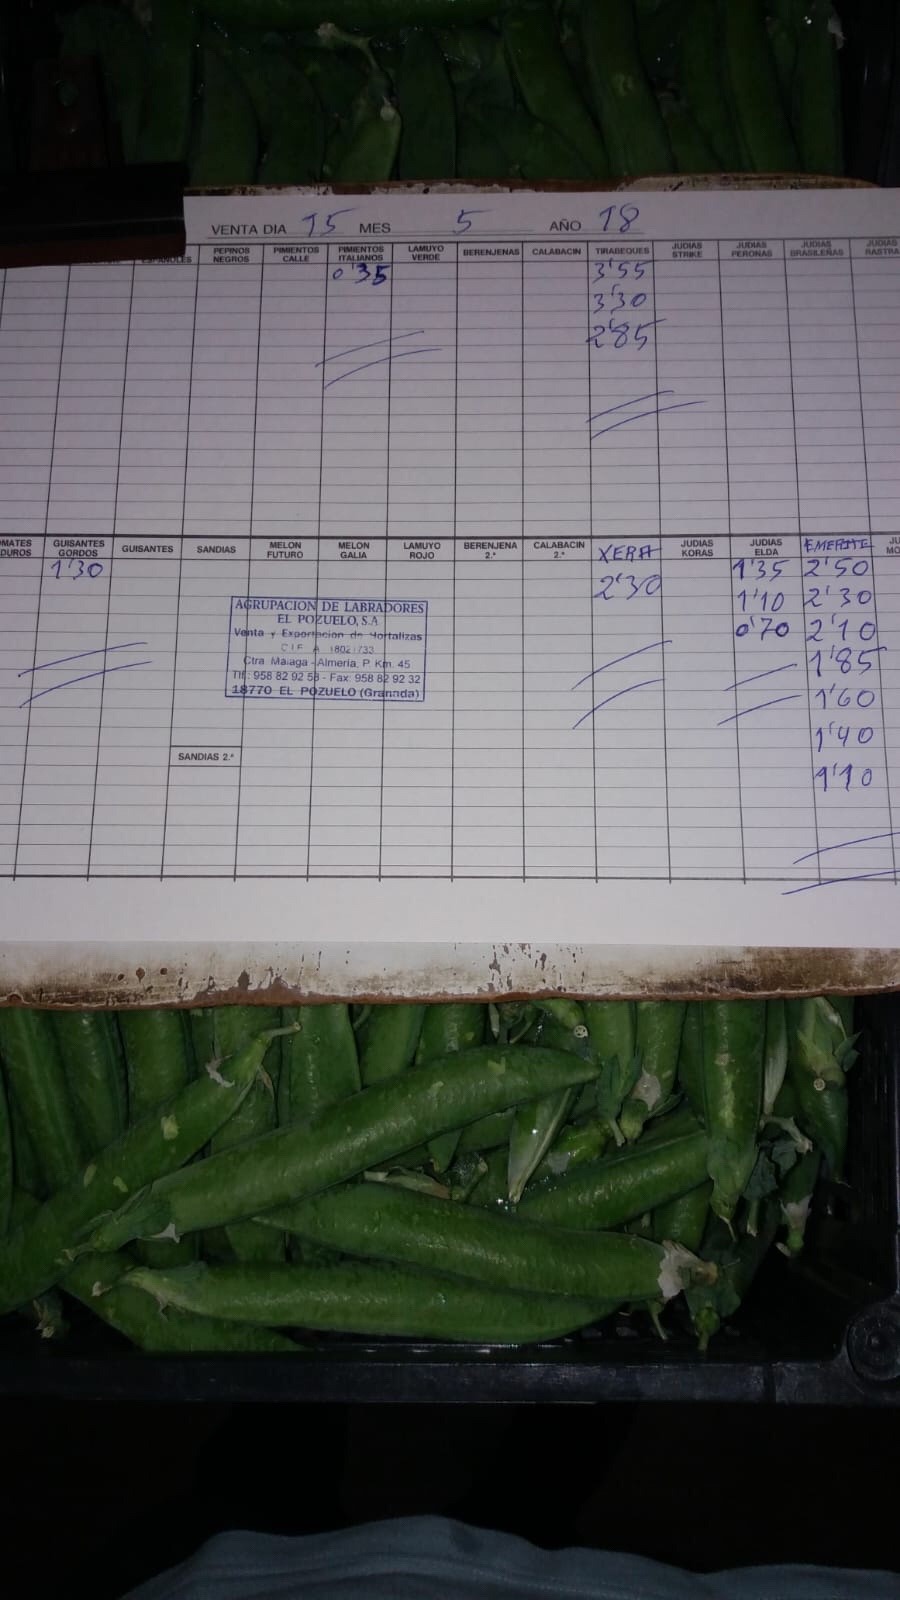 VENTA DIA 15 MES 5 AÑO 18
ESPAÑOLES PEPINOS NEGROS PIMIENTOS CALLE PIMIENTOS ITALIANOS LAMUYO VERDE BERENJENAS CALABACIN TIRABEQUES JUDIAS STRIKE JUDIAS PERONAS JUDIAS BRASILEÑAS JUDIAS RASTRA
0'35 3'55
3'30
2'85
OMATES DUROS GUISANTES GORDOS GUISANTES SANDIAS MELON FUTURO MELON GALIA LAMUYO ROJO BERENJENA 2.ª CALABACIN 2.ª XERA JUDIAS KORAS JUDIAS ELDA EMERITE JU MO
1'30 2'30 1'35 2'50
1'10 2'30
0'70 2'10
1'85
1'60
1'40
1'10
AGRUPACION DE LABRADORES
EL POZUELO, S.A
Venta y Exportacion de Hortalizas
C.I.F. A 18021733
Ctra. Malaga - Almeria, P. Km. 45
Tlf.: 958 82 92 58 - Fax: 958 82 92 32
18770 EL POZUELO (Granada)
SANDIAS 2.ª